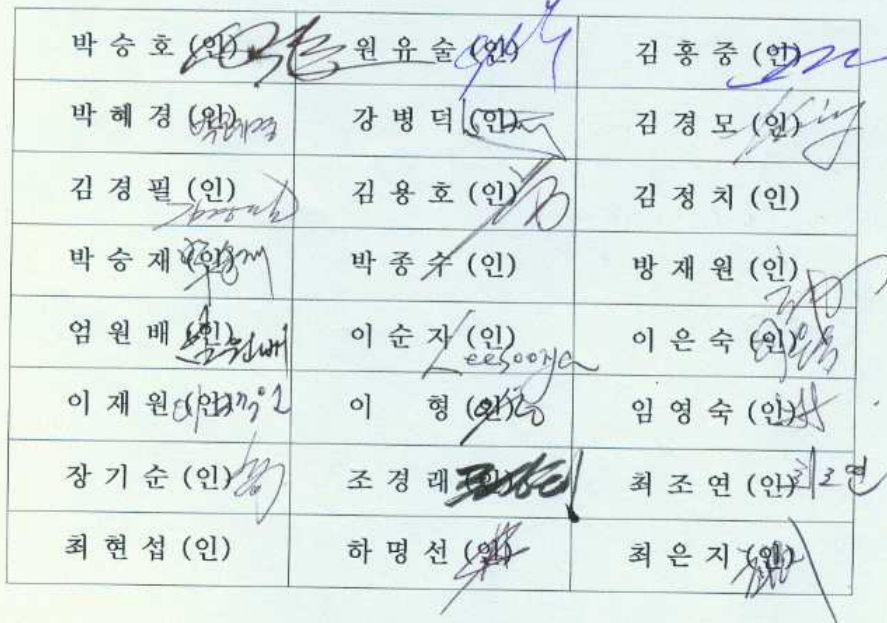 박승호 (인) 원유술 (인) 김홍중 (인)
박혜경 (인) 박혜경 강병덕 (인) 김경모 (인)
김경필 (인) 김용호 (인) 김정치 (인)
박승재 (인) 박승재 박종수 (인) 방재원 (인)
엄원배 (인) 엄원배 이순자 (인) Leesoonja 이은숙 (인)
이재원 (인) 이 형 (인) 임영숙 (인)
장기순 (인) 조경래 (인) 최조연 (인) 최조연
최현섭 (인) 하명선 (인) 최은지 (인)